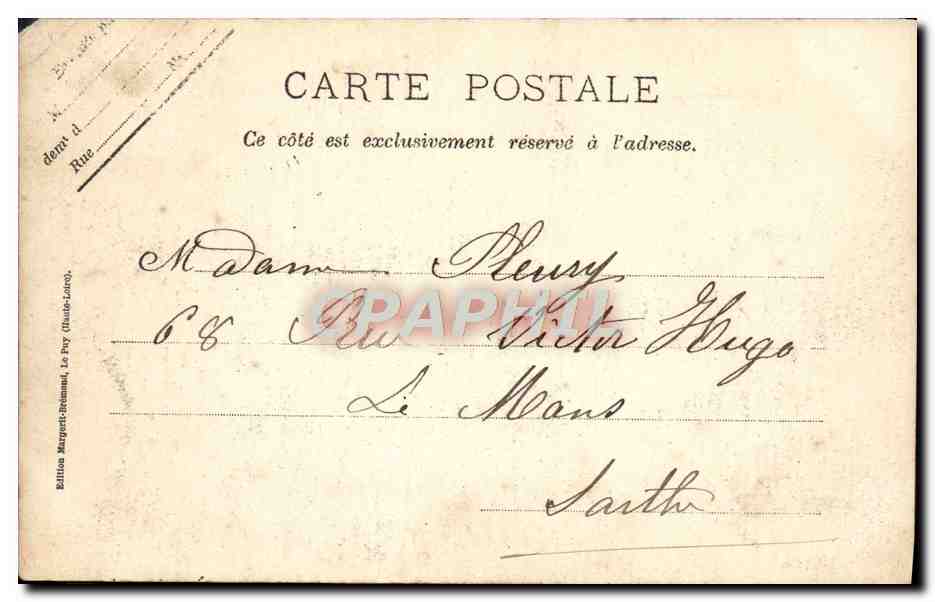 M
demt d
Rue
No
CARTE POSTALE
Ce côté est exclusivement réservé à l'adresse.
Madame Fleury
68 Rue Victor Hugo
Le Mans
Sarthe
CPAPHIL
Edition Margerit-Brémond, Le Puy (Haute-Loire).